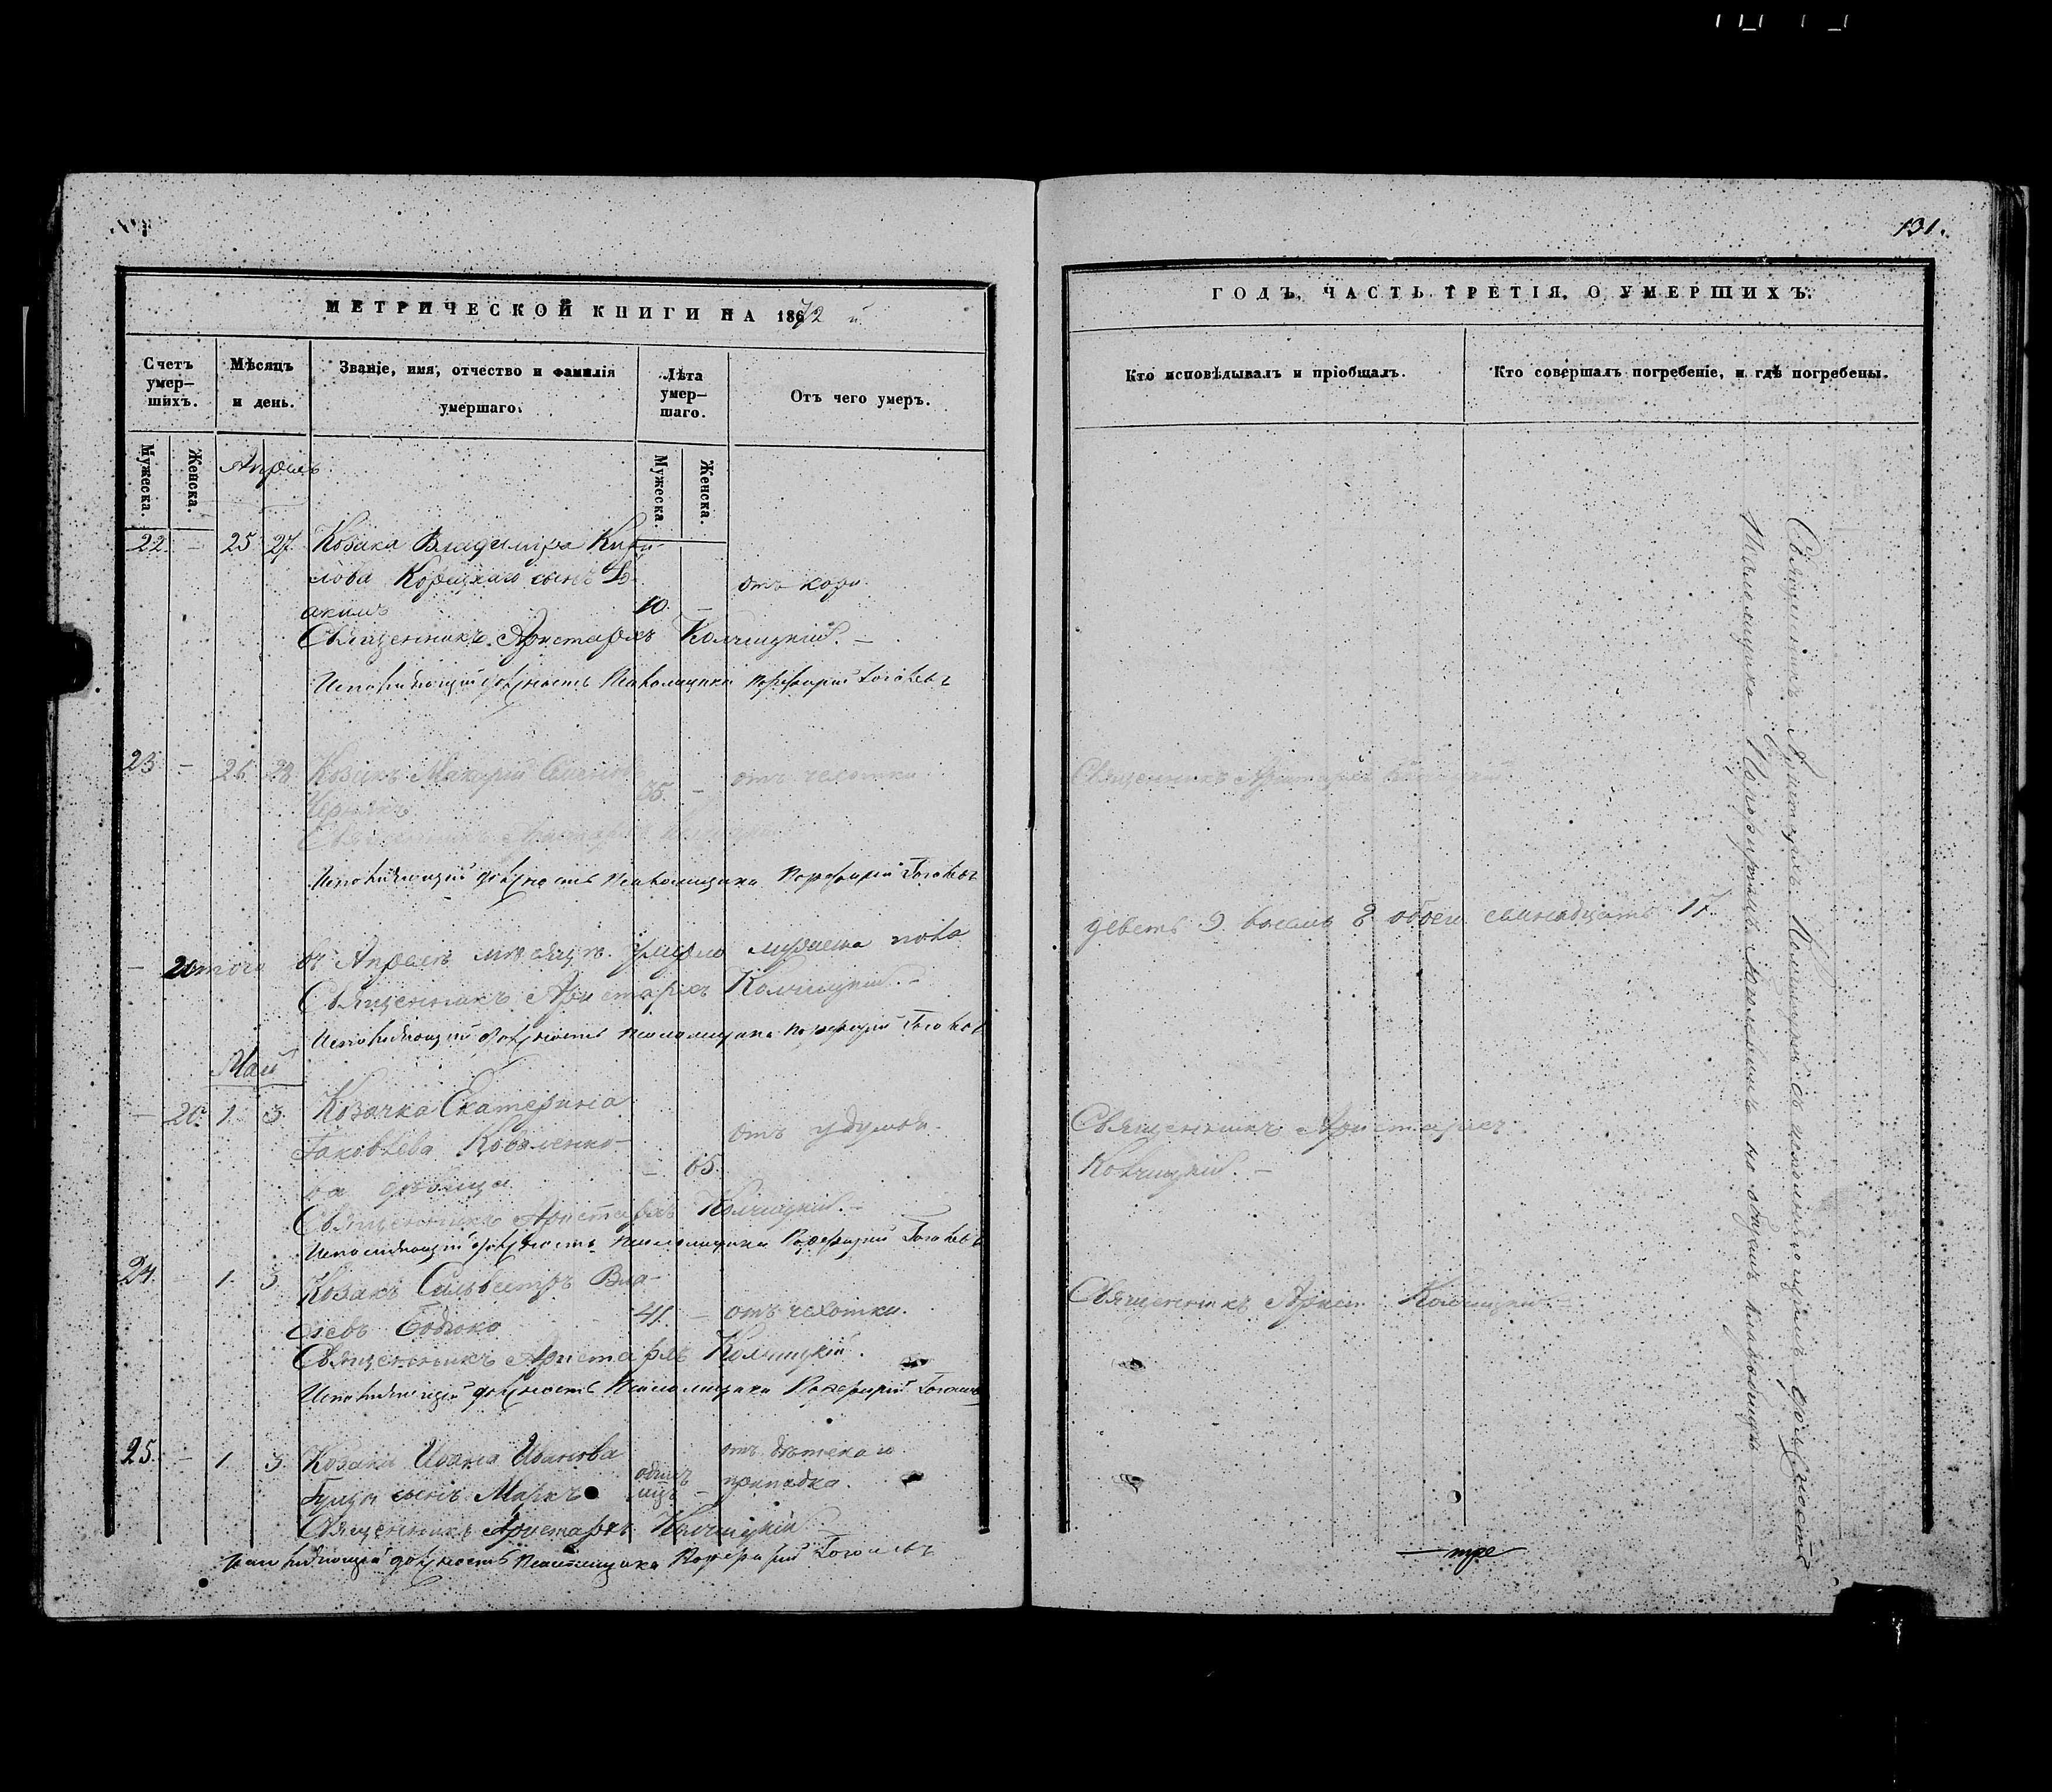 МЕТРИЧЕСКОЙ КНИГИ НА 1872 й
Счетъ умер–шихъ.
Мѣсяцъ и день.
Званіе, имя, отчество и фамилія умершаго.
Лѣта умер–шаго.
Отъ чего умеръ.
Мужеска.
Женска.
Мужеска.
Женска.
Апрель
22. – 25 27. Козака Владиміра Кири–
лова Корицкаго сынъ
акимъ 10. – отъ кори.
Священникъ Аристархъ Колчицкій. –
Исполняющій должность Псаломщика Порфирій
23. – 26. 28. Козакъ Макарій
35. – отъ чехотки
Священникъ Аристархъ Колчицкій
Исполняющій должность Псаломщика Порфирій
– Итого въ Апрелѣ месяцѣ умерло мужеска пола
Священникъ Аристархъ Колчицкій. –
Исполняющій должность псаломщика Порфирій
Май
– 20. 1. 3. Козачка Екатерина
Яковлева Коваленко–
ва – 65. отъ удушья.
Священникъ Аристархъ Колчицкій. –
Исполняющій должность псаломщика Порфирій
24. – 1. 3. Козакъ Сильвестръ Вла–
41. – отъ чехотки.
Священникъ Аристархъ Колчицкій.
Исполняющій должность Псаломщика Порфирій
25. – 1. 3. Козака Ивана Иванова
сынъ Маркъ – отъ дѣтскаго
припадка.
Священникъ Аристархъ Колчицкій
Исполняющій должность Псаломщика Порфирій
131.
ГОДЪ, ЧАСТЬ ТРЕТІЯ, О УМЕРШИХЪ.
Кто исповѣдывалъ и пріобщалъ.
Кто совершалъ погребеніе, и гдѣ погребены.
Священникъ Аристархъ Колчицкій
девять 9 восемь 8 обоего семнадцать 17.
Священникъ Аристархъ
Колчицкій. –
Священникъ Арист. Колчицкій. –
Священникъ Аристархъ Колчицкій съ исполняющимъ должность
Псаломщика Порфиріемъ на общемъ кладбищѣ
– тре –